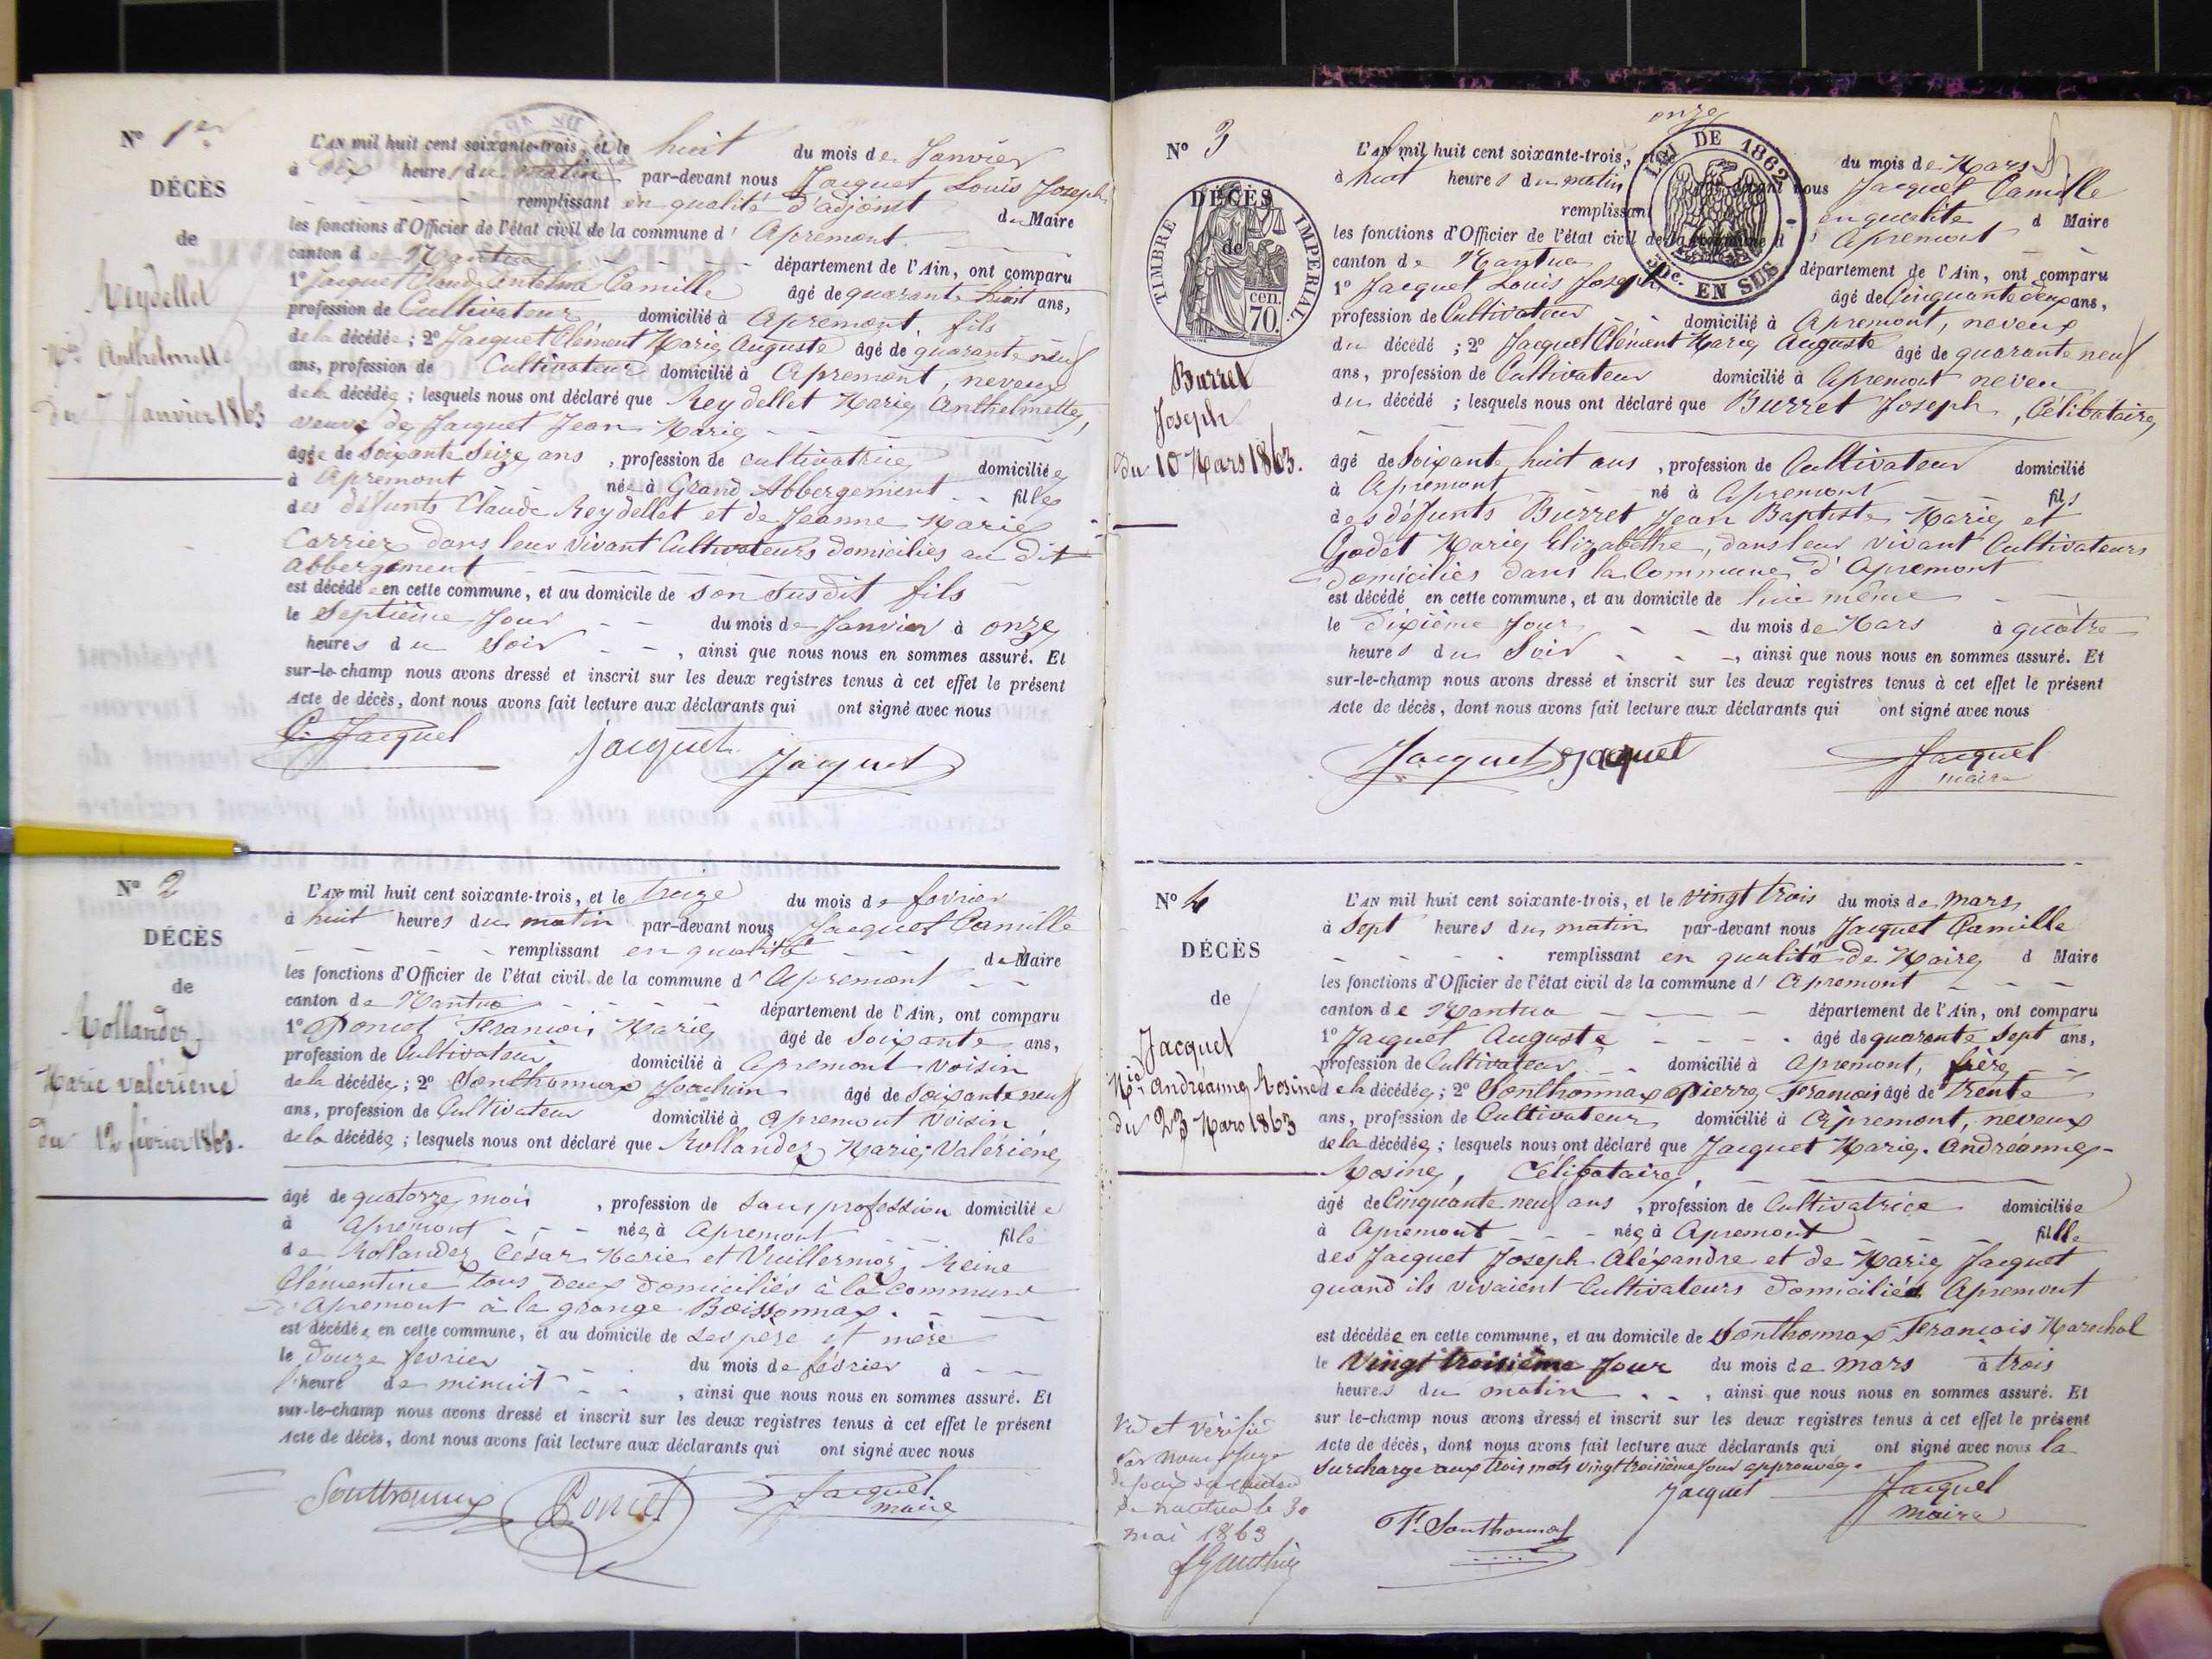 N° 1er
DÉCÈS
de
Reydellet
Mie Anthelmette
du 7 Janvier 1863
L'AN mil huit cent soixante-trois, et le huit du mois de Janvier
à dix heures du matin par-devant nous Jacquet Louis Joseph
remplissant en qualité d'adjoint du Maire
les fonctions d'Officier de l'état civil de la commune d'Apremont
canton de Nantua département de l'Ain, ont comparu
1° Jacquet Claude Anthelme Camille âgé de quarante huit ans,
profession de Cultivateur domicilié à Apremont, fils
de la décédée ; 2° Jacquet Clément Marie Auguste âgé de quarante neuf
ans, profession de Cultivateur domicilié à Apremont, neveux
de la décédée ; lesquels nous ont déclaré que Reydellet Marie Anthelmette,
veuve de Jacquet Jean Marie
âgée de Soixante Seize ans , profession de cultivatrice domiciliée
à Apremont née à Grand Abbergement fille
des défunts Claude Reydellet et de Jeanne Marie
Carrier dans leur vivant Cultivateurs domiciliés au dit
Abbergement
est décédée en cette commune, et au domicile de son susdit fils
le Septième Jour du mois de Janvier à onze
heures du Soir , ainsi que nous nous en sommes assuré. Et
sur-le-champ nous avons dressé et inscrit sur les deux registres tenus à cet effet le présent
Acte de décès, dont nous avons fait lecture aux déclarants qui ont signé avec nous
C. Jacquet Jacquet Jacquet
N° 2
DÉCÈS
de
Rollandez
Marie valériene
du 12 février 1863.
L'AN mil huit cent soixante-trois, et le treize du mois de fevrier
à huit heures du matin par-devant nous Jacquet Camille
remplissant en qualité de Maire
les fonctions d'Officier de l'état civil de la commune d'Apremont
canton de Nantua département de l'Ain, ont comparu
1° Poncet Francois Marie âgé de Soixante ans,
profession de Cultivateur domicilié à Apremont voisin
de la décédée ; 2° Sonthonnax Joachim âgé de Soixante neuf
ans, profession de Cultivateur domicilié à Apremont voisin
de la décédée ; lesquels nous ont déclaré que Rollandez Marie Valériéne
âgé de quatorze mois , profession de Sans profession domiciliée
à Apremont née à Apremont fille
de Rollandez César Marie et Vuillermoz Reine
Clémentine tous deux domiciliés à la commune
d'Apremont à la grange Boissonnax.
est décédée en cette commune, et au domicile de ses pere et mère
le douze fevrier du mois de février à
l'heure de minuit , ainsi que nous nous en sommes assuré. Et
sur-le-champ nous avons dressé et inscrit sur les deux registres tenus à cet effet le présent
Acte de décès, dont nous avons fait lecture aux déclarants qui ont signé avec nous
Sonthonnax Poncet Jacquet
maire
N° 3
DÉCÈS
de
TIMBRE IMPERIAL
cen.
70.
Burret
Joseph
du 10 Mars 1863.
onze
LOI DE 1862
EN SUS
L'AN mil huit cent soixante-trois, du mois de Mars
à huit heures du matin nous Jacquet Camille
remplissant en qualite d Maire
les fonctions d'Officier de l'état civil de la commune d'Apremont
canton de Nantua département de l'Ain, ont comparu
1° Jacquet Louis Joseph âgé de Cinquante deux ans,
profession de Cultivateur domicilié à Apremont, neveux
du décédé ; 2° Jacquet Clément Marie Auguste âgé de quarante neuf
ans, profession de Cultivateur domicilié à Apremont neveu
du décédé ; lesquels nous ont déclaré que Burret Joseph, Célibataire
âgé de Soixante huit ans , profession de Cultivateur domicilié
à Apremont né à Apremont fils
des défunts Burret Jean Baptiste Marie et
Godet Marie Elizabethe, dans leur vivant Cultivateurs
domiciliés dans la Commune d'Apremont
est décédé en cette commune, et au domicile de lui même
le dixième Jour du mois de Mars à quatre
heures du Soir , ainsi que nous nous en sommes assuré. Et
sur-le-champ nous avons dressé et inscrit sur les deux registres tenus à cet effet le présent
Acte de décès, dont nous avons fait lecture aux déclarants qui ont signé avec nous
Jacquet Jacquet Jacquet
maire
N° 4
DÉCÈS
de
Jacquet
Mie Andréanne Rosine
du 23 Mars 1863
L'AN mil huit cent soixante-trois, et le vingt trois du mois de mars
à Sept heures du matin par-devant nous Jacquet Camille
remplissant en qualité de Maire d Maire
les fonctions d'Officier de l'état civil de la commune d'Apremont
canton de Nantua département de l'Ain, ont comparu
1° Jacquet Auguste âgé de quarante Sept ans,
profession de Cultivateur domicilié à Apremont, frère
de la décédée ; 2° Sonthonnax Pierre Francois âgé de trente
ans, profession de Cultivateur domicilié à Apremont, neveux
de la décédée ; lesquels nous ont déclaré que Jacquet Marie Andréanne
Rosine, Célibataire,
âgé de Cinquante neuf ans , profession de Cultivatrice domiciliée
à Apremont née à Apremont fille
des Jacquet Joseph Aléxandre et de Marie Jacquet
quand ils vivaient Cultivateurs domiciliés Apremont
est décédée en cette commune, et au domicile de Sonthonnax Francois Marechal
le Vingt troisième Jour du mois de mars à trois
heures du matin , ainsi que nous nous en sommes assuré. Et
sur le-champ nous avons dressé et inscrit sur les deux registres tenus à cet effet le présent
Acte de décès, dont nous avons fait lecture aux déclarants qui ont signé avec nous la
Surcharge aux trois mots vingt troisième Jour approuvée.
Jacquet Jacquet
F. Sonthonnax maire
Vu et vérifié
par nous Juge
de paix du canton
de nantua le 30
mai 1863